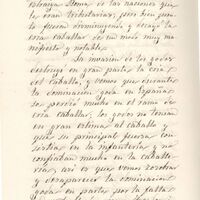 estranjera Roma de las naciones que
le eran tributarias; pero bien pronto
fueron disminuyendo y decayó la
cría caballar de un modo muy ma-
nifiesto y notable.
La invasión de los godos
destruyó en gran parte la cría
del caballo, y vemos que durante
la dominación goda en España
se perdió mucho en el ramo de
cría caballar, los godos no tenían
en gran estima al caballo
por su principal fuerza con-
sistía en la infantería y no
confiaban mucho en la caballe-
ría, así es que vemos
desaparecer la dominación
goda en parte por la falta